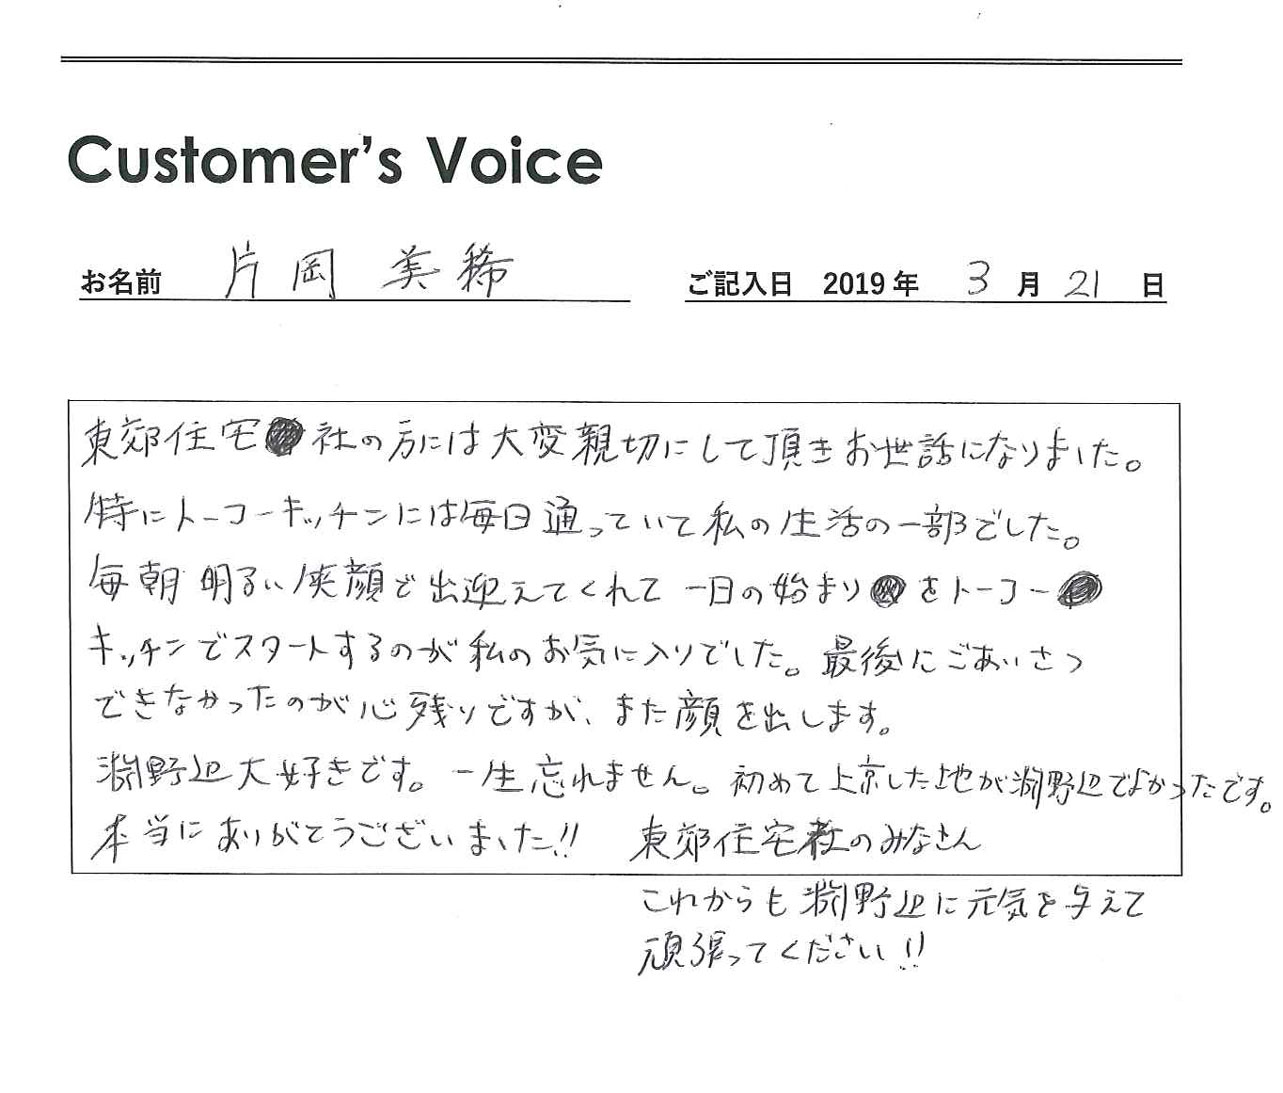 Customer's Voice
お名前 片岡 美稀 ご記入日 2019年 3月 21日
東郊住宅社の方には大変親切にして頂きお世話になりました。
特にトーコーキッチンには毎日通っていて私の生活の一部でした。
毎朝明るい笑顔で出迎えてくれて一日の始まりをトーコー
キッチンでスタートするのが私のお気に入りでした。最後にごあいさつ
できなかったのが心残りですが、また顔を出します。
淵野辺大好きです。一生忘れません。初めて上京した地が淵野辺でよかったです。
本当にありがとうございました!! 東郊住宅社のみなさん
これからも淵野辺に元気を与えて
頑張ってください!!